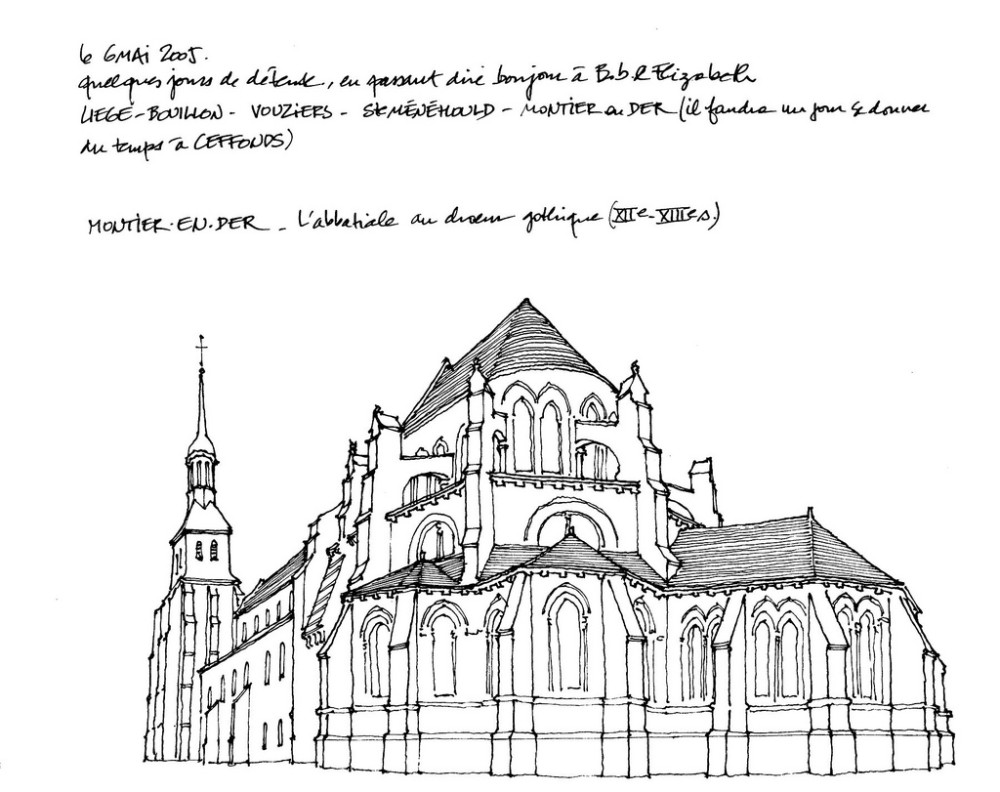 le 6 MAi 2005.
quelques jours de détente, en passant dire bonjour à Bob & Elizabeth
LIEGE - BOUILLON - VOUZIERS - Ste MÉNÉHOULD - MONTIER en DER (il faudra un jour donner
du temps à CEFFONDS)
MONTIER-EN-DER - L'abbatiale au choeur gothique (XIIe - XIIIe s.)